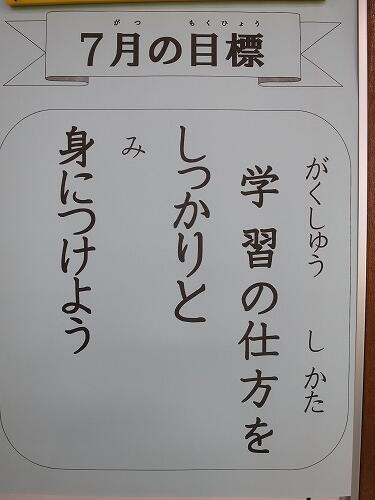 がつ もくひょう
7月の目標
がくしゅう しかた
学習の仕方を
しっかりと
み
身につけよう